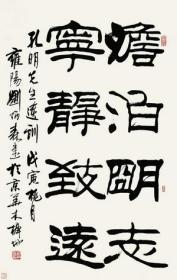 澹泊明志
寧靜致遠
孔明先生遺訓 戊寅桃月
雍陽劉炳森書於京華木樨地